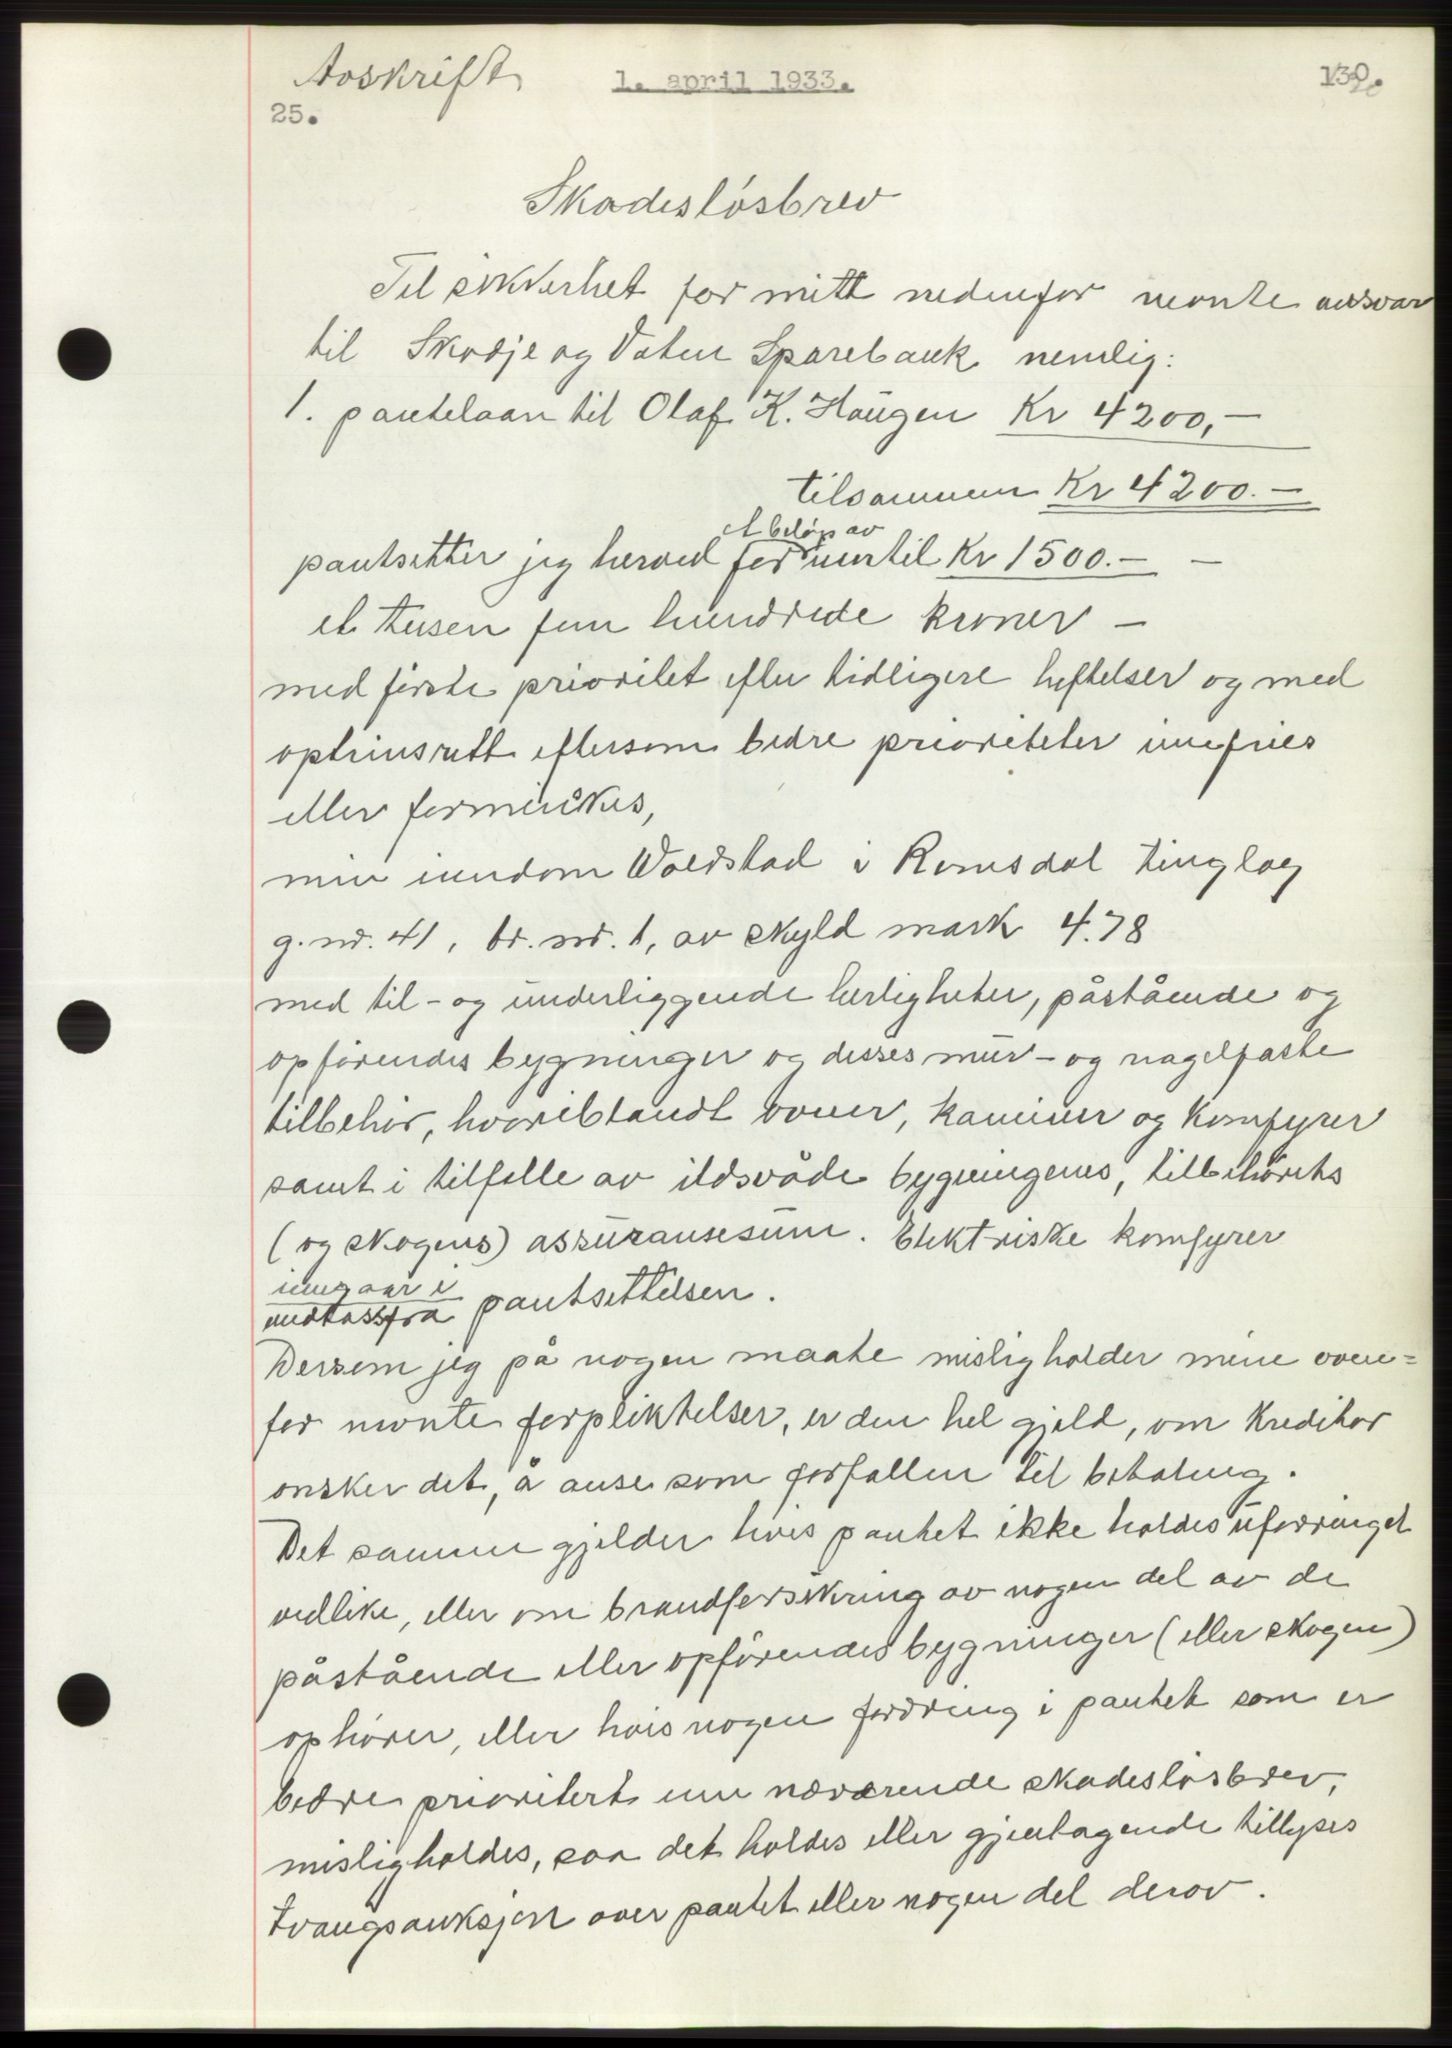 Avskrift
1. april 1933.
130.
25.
Skadesløsbrev
Til sikkerhet for mitt nedenfor nevnte ansvar
til Skodje og Vatne Sparebank nemlig:
1. pantelaan til Olaf K. Haugen Kr 4200,-
tilsammen Kr 4200.-
et beløp av
pantsetter jeg herved for inntil Kr 1500.- -
et tusen fem hundrede kroner -
med første prioritet efter tidligere heftelser og med
optrinsrett eftersom bedre prioriteter innfries
eller forminskes,
min eiendom Woldstad i Romsdal tinglag
g. nr. 41, br. nr. 1, av skyld mark 4.78
med til- og underliggende herligheter, påstående og
opførendes bygninger og disses mur- og nagelfaste
tilbehør, hvoriblandt ovner, kaminer og komfyrer
samt i tilfelle av ildsvåde bygningenes, tilbehørets
(og skogens) assuransesum. Elektriske komfyrer
inngaar i
undtas fra pantsettelsen.
Dersom jeg på nogen maate misligholder mine oven=
for nevnte forpliktelser, er den hel gjeld, om kreditor
ønsker det, å anse som forfallen til betaling.
Det samme gjelder hvis pantet ikke holdes uforringet
vedlike, eller om brandforsikring av nogen del av de
påstående eller opførendes bygninger (eller skogen)
ophører, eller hvis nogen fordring i pantet som er
bedre prioritert enn nærværende skadesløsbrev,
misligholdes, saa det holdes eller gjentagende tillyses
tvangsauksjon over pantet eller nogen del derav.